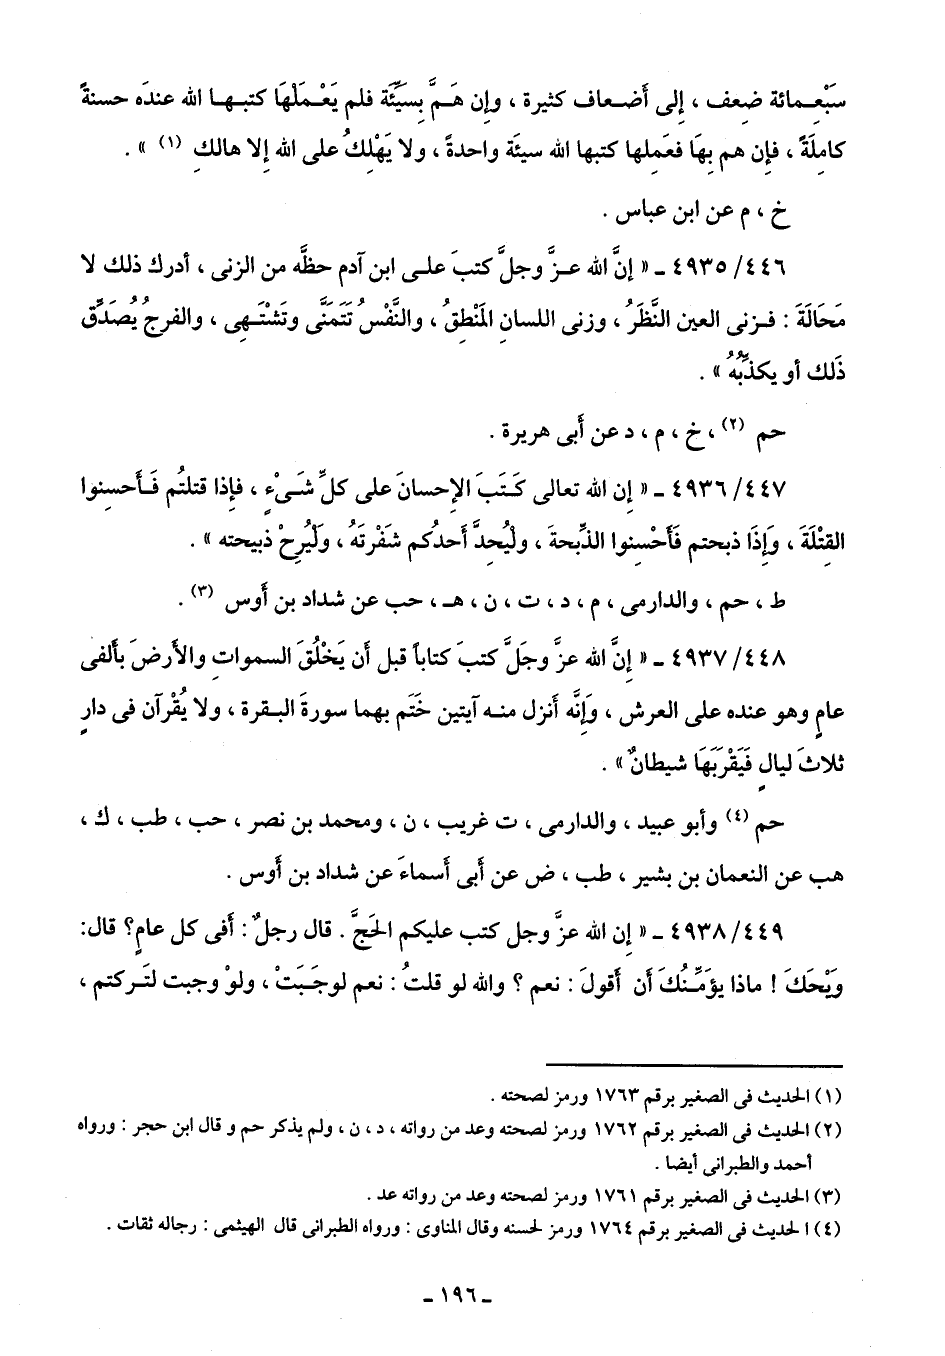 سَبْعِمائة ضِعف ، إلى أَضعاف كثيرة ، وإن هَمَّ بِسَيِّئَة فلم يَعْمَلْهَا كتبها الله عندَه حسنةً
كامِلَةً ، فإِن هم بِهَا فعَمِلها كتبها الله سيئة واحدةً ، ولا يَهْلِكُ على الله إِلا هالك (١) » .
خ ، م عن ابن عباس .
٤٩٣٥/٤٤٦ ـ « إنَّ الله عزَّ وجلَّ كتبَ على ابن آدم حظَّه من الزنى ، أدرك ذلك لا
مَحَالَةَ : فزنى العين النَّظَرُ ، وزنى اللسانِ المَنْطِقُ ، والنَّفْسُ تَتَمَنَّى وتَشْتَهِى ، والفرجُ يُصَدِّق
ذَلك أو يكذِّبُهُ » .
حم (٢) ، خ ، م ، د عن أَبى هريرة .
٤٩٣٦/٤٤٧ ـ « إن الله تعالى كَتَبَ الإِحسانَ على كلِّ شَىْءٍ ، فإذا قتلتُم فَأَحسِنوا
القِتْلَةَ ، وَإِذَا ذبحتم فَأَحْسِنوا الذِّبحةَ ، ولْيُحِدَّ أَحدُكم شفْرتَهُ ، ولْيُرِحْ ذبيحته » .
ط ، حم ، والدارمى ، م ، د ، ت ، ن ، هـ ، حب عن شداد بن أَوس (٣) .
٤٩٣٧/٤٤٨ ـ « إِنَّ الله عزَّ وجَلَّ كتبَ كتاباً قبل أن يَخْلُقَ السمواتِ والأَرضَ بأَلفى
عامٍ وهو عنده على العرش ، وَإِنَّه أَنزل منه آيتين خَتَم بهما سورةَ البقرة ، ولا يُقْرآن فى دارٍ
ثلاثَ ليالٍ فَيَقْرَبَهَا شيطانٌ » .
حم (٤) وأبو عبيد ، والدارمى ، ت غريب ، ن ، ومحمد بن نصر ، حب ، طب ، ك ،
هب عن النعمان بن بشير ، طب ، ض عن أَبى أَسماءَ عن شداد بن أَوس .
٤٩٣٨/٤٤٩ ـ « إِن الله عزَّ وجل كتب عليكم الحَجَّ . قال رجلٌ : أَفى كل عامٍ؟ قال:
وَيْحَكَ ! ماذا يؤَمِّنُكَ أَن أَقولَ : نعم ؟ والله لو قلتُ : نعم لوجَبَتْ ، ولوْ وجبت لتَركتم ،
(١) الحديث فى الصغير برقم ١٧٦٣ ورمز لصحته .
(٢) الحديث فى الصغير برقم ١٧٦٢ ورمز لصحته وعد من رواته ، د ، ن ، ولم يذكر حم و قال ابن حجر : ورواه
أحمد والطبرانى أيضا .
(٣) الحديث فى الصغير برقم ١٧٦١ ورمز لصحته وعد من رواته عد .
(٤) الحديث فى الصغير برقم ١٧٦٤ ورمز لحسنه وقال المناوى : ورواه الطبرانى قال الهيثمى : رجاله ثقات .
ـ ١٩٦ ـ